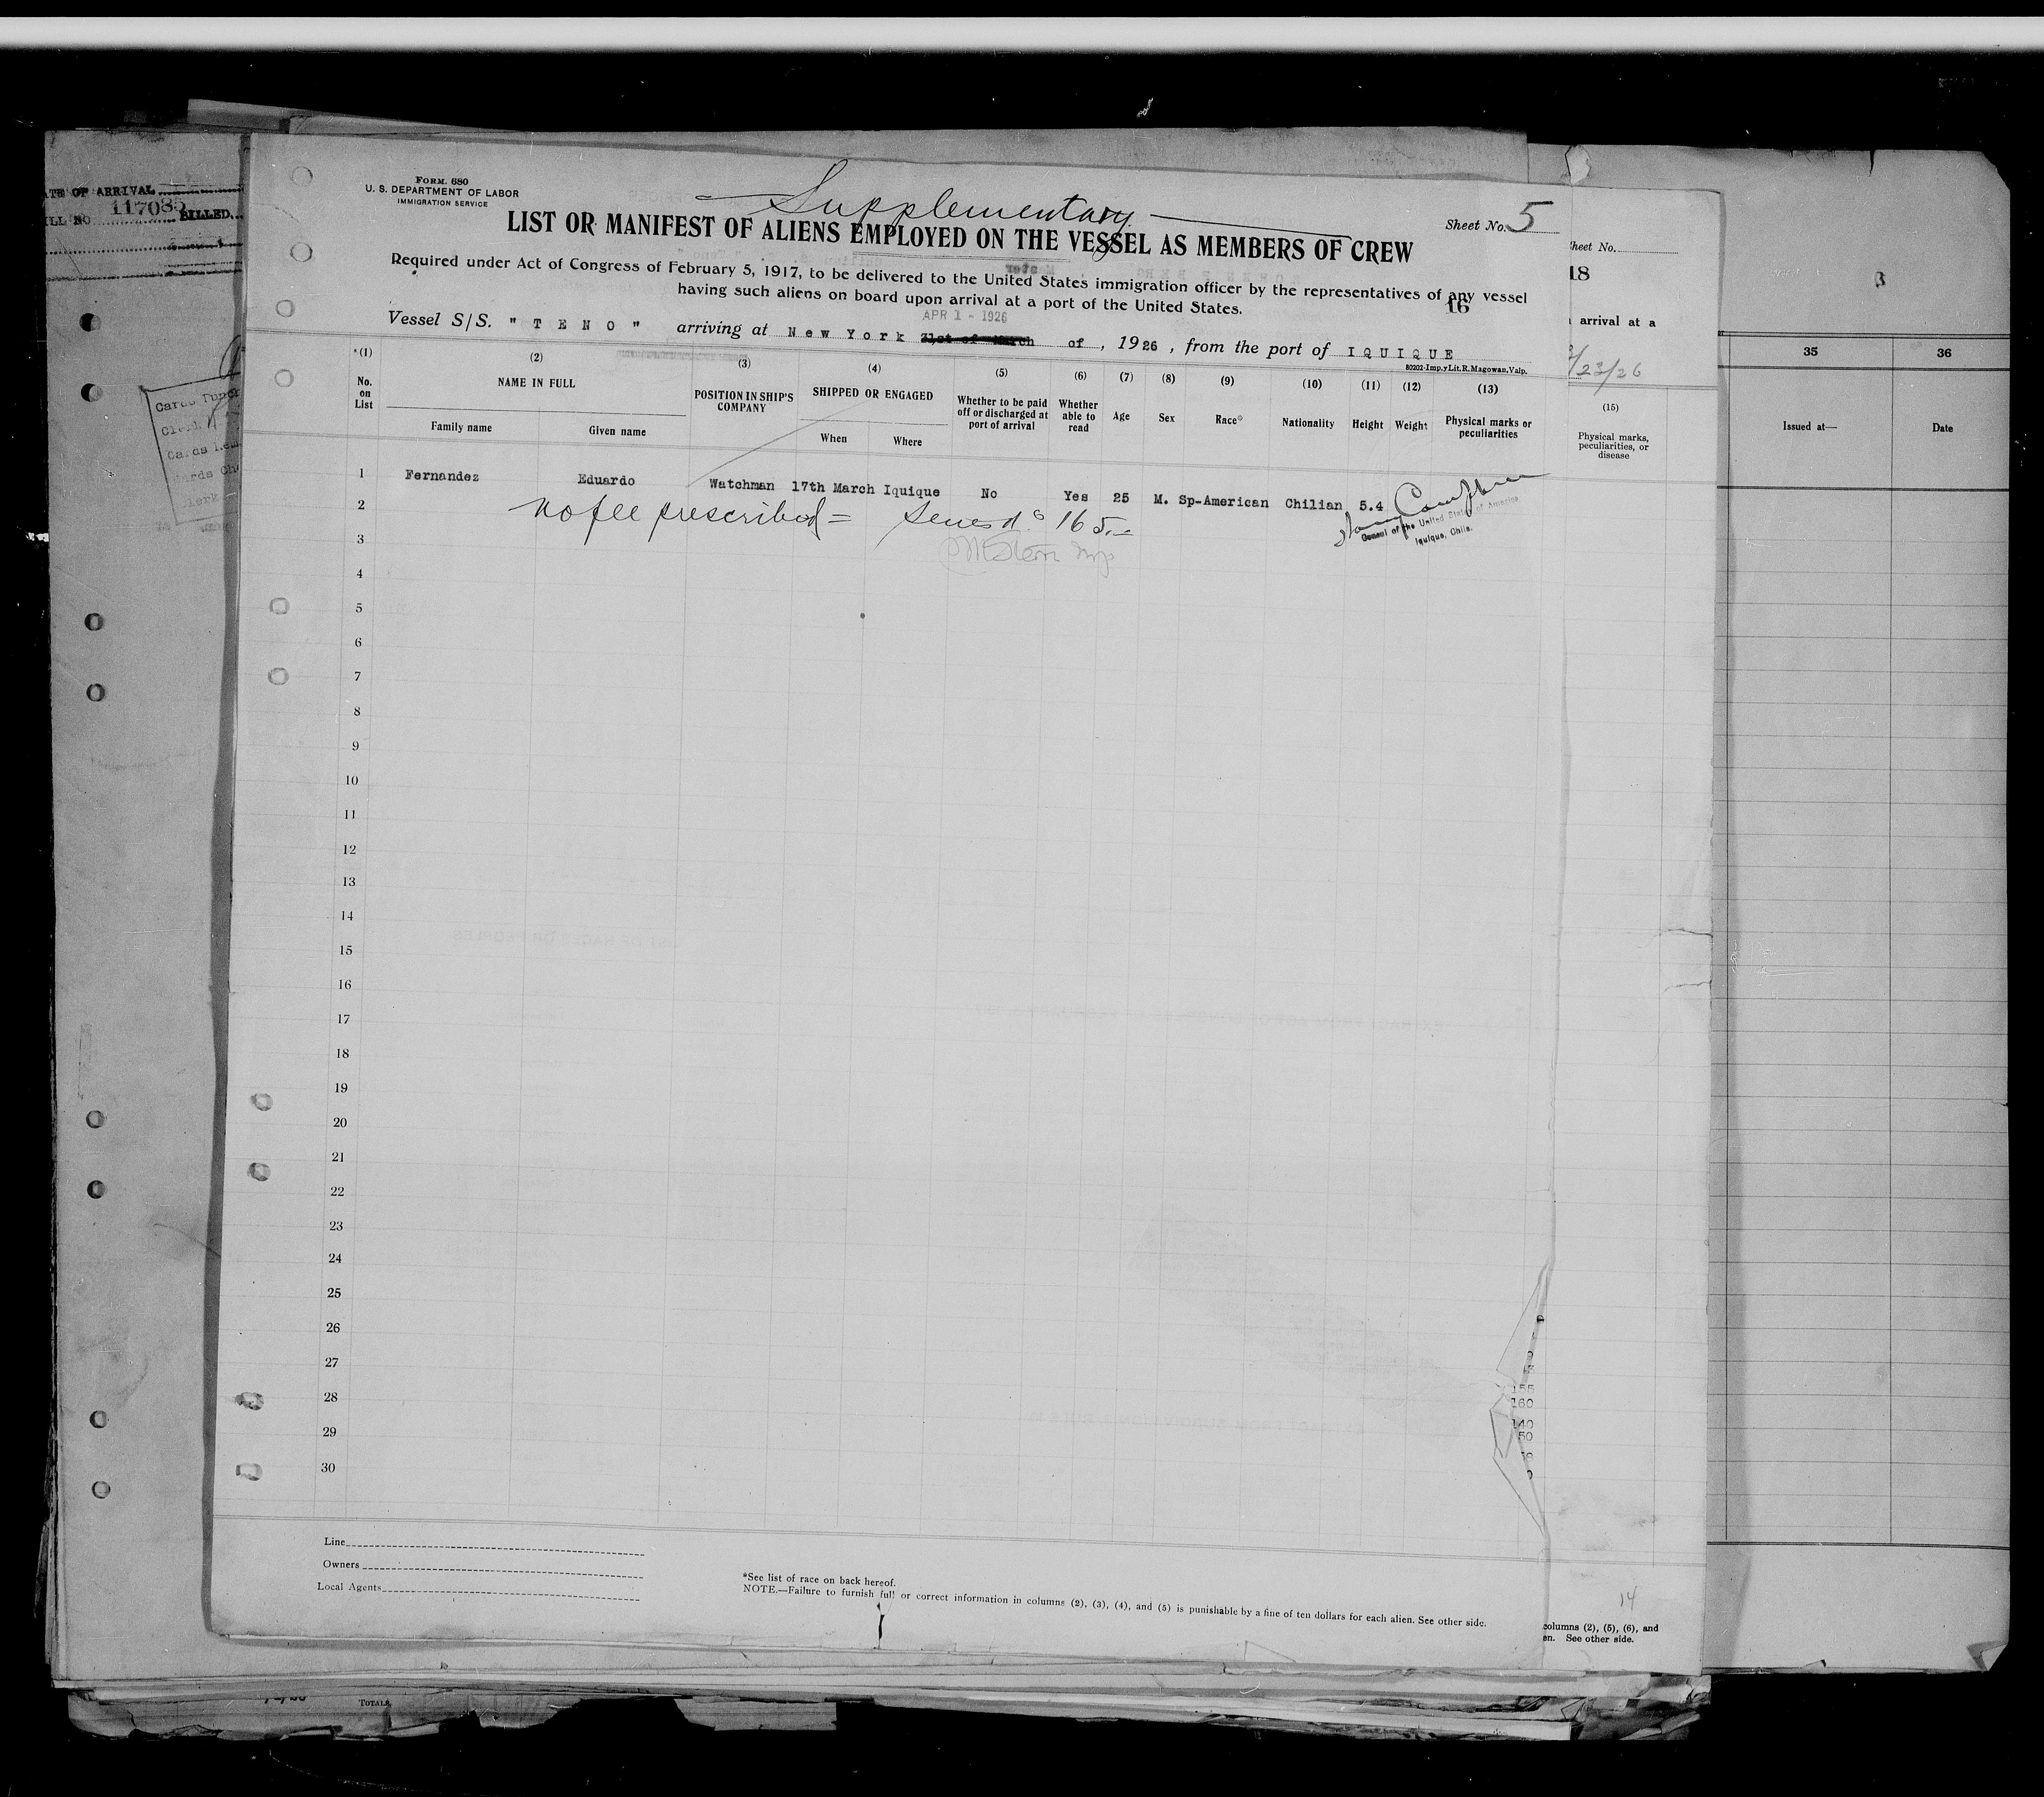 FORM. 680
U. S. DEPARTMENT OF LABOR
IMMIGRATION SERVICE
Supplementary
Sheet No. 5
LIST OR MANIFEST OF ALIENS EMPLOYED ON THE VESSEL AS MEMBERS OF CREW
Required under Act of Congress of February 5, 1917, to be delivered to the United States immigration officer by the representatives of any vessel
having such aliens on board upon arrival at a port of the United States.
16
APR 1 - 1926
Vessel S/S. " T E N O " arriving at New York 31st of March of , 1926 , from the port of IQUIQUE
80202-Imp.y Lit. R. Magowan, Valp.
*(1) (2) (3) (4) (5) (6) (7) (8) (9) (10) (11) (12) (13)
No. on List NAME IN FULL Family name Given name POSITION IN SHIP'S COMPANY SHIPPED OR ENGAGED When Where Whether to be paid off or discharged at port of arrival Whether able to read Age Sex Race* Nationality Height Weight Physical marks or peculiarities
1 Fernandez Eduardo Watchman 17th March Iquique No Yes 25 M. Sp-American Chilian 5.4
2 No fee prescribed = 165.=
Consul of the United States of America
Iquique, Chile.
3
4
5
6
7
8
9
10
11
12
13
14
15
16
17
18
19
20
21
22
23
24
25
26
27
28
29
30
Line
Owners
Local Agents
*See list of race on back hereof.
NOTE.—Failure to furnish full or correct information in columns (2), (3), (4), and (5) is punishable by a fine of ten dollars for each alien. See other side.
ATE OF ARRIVAL
ILL NO. 117085 BILLED
TOTALS
heet No.
18
arrival at a
/23/26
(15)
Physical marks,
peculiarities, or
disease
155
160
140
50
14
columns (2), (5), (6), and
en. See other side.
35 36
Issued at— Date